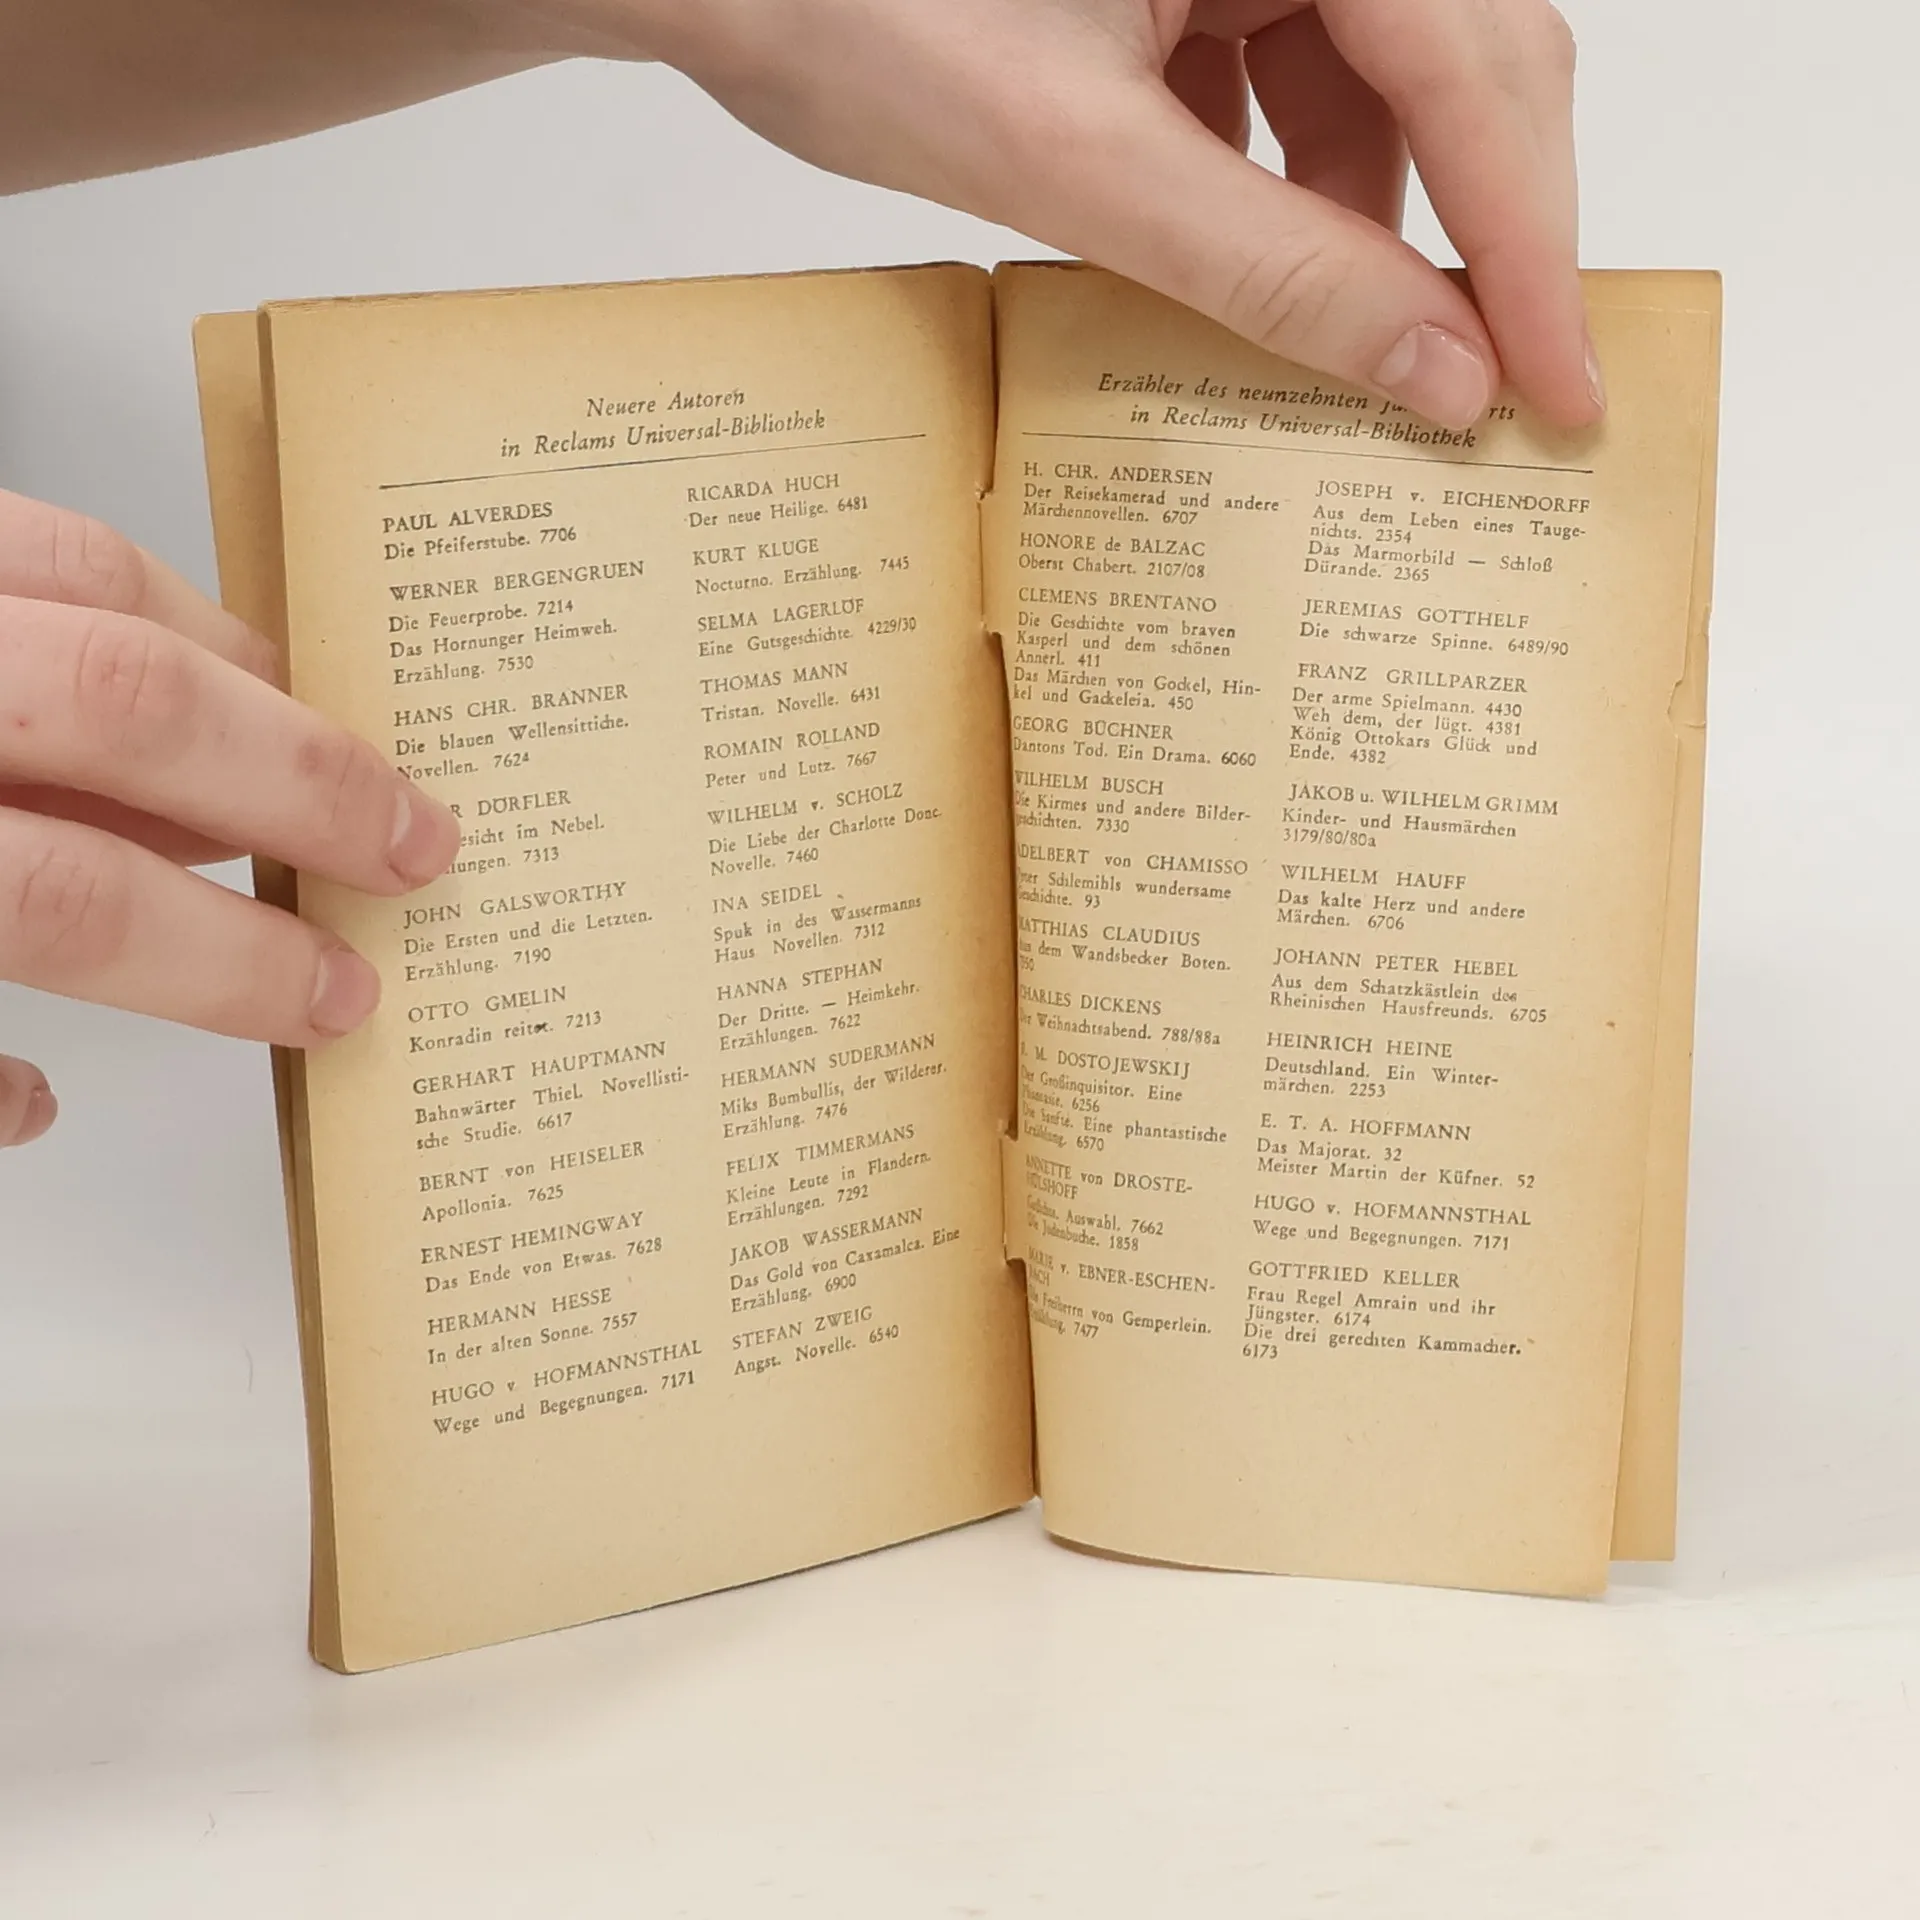 Neuere Autoren
in Reclams Universal-Bibliothek
PAUL ALVERDES
Die Pfeiferstube. 7706
WERNER BERGENGRUEN
Die Feuerprobe. 7214
Das Hornunger Heimweh.
Erzählung. 7530
HANS CHR. BRANNER
Die blauen Wellensittiche.
Novellen. 7624
DÖRFLER
im Nebel.
7313
JOHN GALSWORTHY
Die Ersten und die Letzten.
Erzählung. 7190
OTTO GMELIN
Konradin reitet. 7213
GERHART HAUPTMANN
Bahnwärter Thiel. Novellisti-
sche Studie. 6617
BERNT von HEISELER
Apollonia. 7625
ERNEST HEMINGWAY
Das Ende von Etwas. 7628
HERMANN HESSE
In der alten Sonne. 7557
HUGO v. HOFMANNSTHAL
Wege und Begegnungen. 7171
RICARDA HUCH
Der neue Heilige. 6481
KURT KLUGE
Nocturno. Erzählung. 7445
SELMA LAGERLÖF
Eine Gutsgeschichte. 4229/30
THOMAS MANN
Tristan. Novelle. 6431
ROMAIN ROLLAND
Peter und Lutz. 7667
WILHELM v. SCHOLZ
Die Liebe der Charlotte Donc.
Novelle. 7460
INA SEIDEL
Spuk in des Wassermanns
Haus Novellen. 7312
HANNA STEPHAN
Der Dritte. — Heimkehr.
Erzählungen. 7622
HERMANN SUDERMANN
Miks Bumbullis, der Wilderer.
Erzählung. 7476
FELIX TIMMERMANS
Kleine Leute in Flandern.
Erzählungen. 7292
JAKOB WASSERMANN
Das Gold von Caxamalca. Eine
Erzählung. 6900
STEFAN ZWEIG
Angst. Novelle. 6540
Erzähler des neunzehnten
in Reclams Universal-Bibliothek
H. CHR. ANDERSEN
Der Reisekamerad und andere
Märchennovellen. 6707
HONORE de BALZAC
Oberst Chabert. 2107/08
CLEMENS BRENTANO
Die Geschichte vom braven
Kasperl und dem schönen
Annerl. 411
Das Märchen von Gockel, Hin-
kel und Gackeleia. 450
GEORG BÜCHNER
Dantons Tod. Ein Drama. 6060
WILHELM BUSCH
Die Kirmes und andere Bilder-
geschichten. 7330
ADELBERT von CHAMISSO
Peter Schlemihls wundersame
Geschichte. 93
MATTHIAS CLAUDIUS
Aus dem Wandsbecker Boten.
CHARLES DICKENS
Der Weihnachtsabend. 788/88a
F. M. DOSTOJEWSKIJ
Der Großinquisitor. Eine
Phantasie. 6256
Die Sanfte. Eine phantastische
Erzählung. 6570
ANNETTE von DROSTE-
HÜLSHOFF
Gedichte. Auswahl. 7662
Die Judenbuche. 1858
MARIE v. EBNER-ESCHEN-
BACH
Die Freiherrn von Gemperlein.
Erzählung. 7477
JOSEPH v. EICHENDORFF
Aus dem Leben eines Tauge-
nichts. 2354
Das Marmorbild — Schloß
Dürande. 2365
JEREMIAS GOTTHELF
Die schwarze Spinne. 6489/90
FRANZ GRILLPARZER
Der arme Spielmann. 4430
Weh dem, der lügt. 4381
König Ottokars Glück und
Ende. 4382
JAKOB u. WILHELM GRIMM
Kinder- und Hausmärchen
3179/80/80a
WILHELM HAUFF
Das kalte Herz und andere
Märchen. 6706
JOHANN PETER HEBEL
Aus dem Schatzkästlein des
Rheinischen Hausfreunds. 6705
HEINRICH HEINE
Deutschland. Ein Winter-
märchen. 2253
E. T. A. HOFFMANN
Das Majorat. 32
Meister Martin der Küfner. 52
HUGO v. HOFMANNSTHAL
Wege und Begegnungen. 7171
GOTTFRIED KELLER
Frau Regel Amrain und ihr
Jüngster. 6174
Die drei gerechten Kammacher.
6173